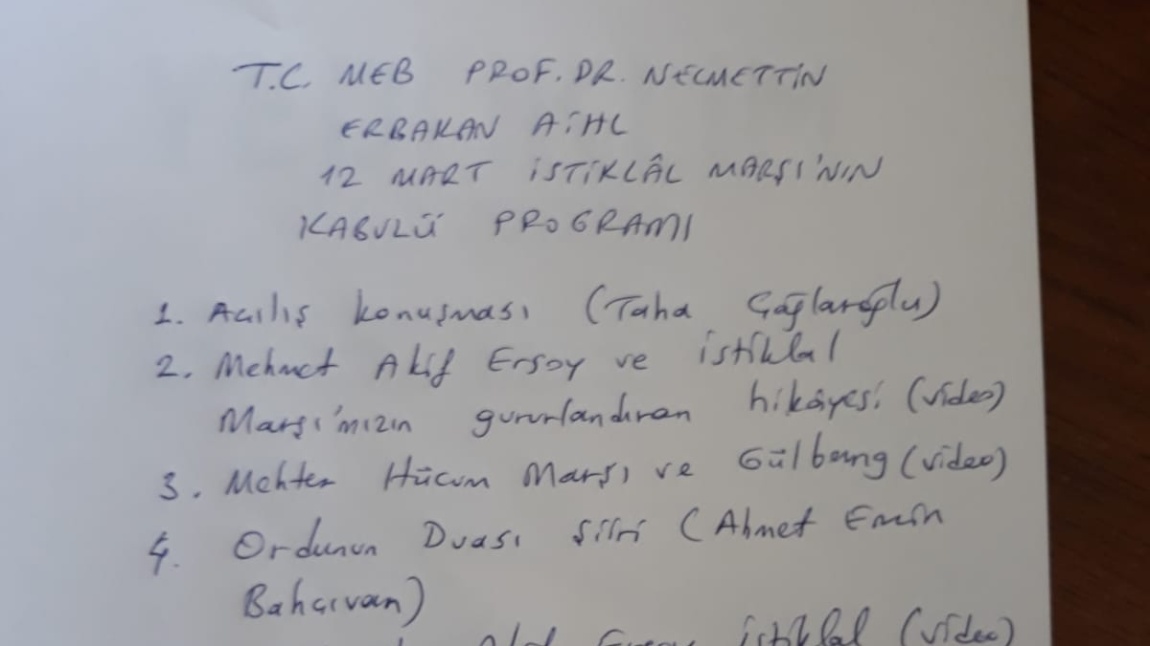 T.C. MEB PROF. DR. NECMETTİN
ERBAKAN AİHL
12 MART İSTİKLÂL MARŞI'NIN
KABULÜ PROGRAMI
1. Açılış konuşması (Taha Çağlaroğlu)
2. Mehmet Akif Ersoy ve istiklal
Marşı'mızın gururlandıran hikâyesi (video)
3. Mehter Hücum Marşı ve Gülbang (video)
4. Ordunun Duası şiiri (Ahmet Emin
Bahçıvan)
istiklal (video)